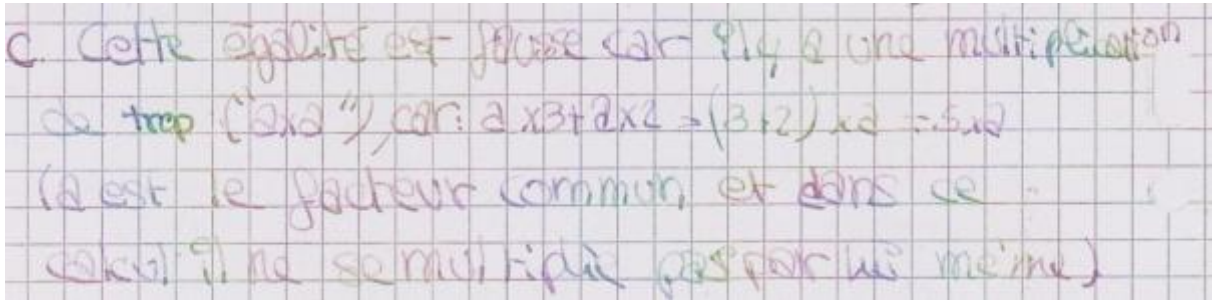 c. Cette égalité est fausse car il y a une multiplication
de trop ("axa"), car : a x3+ax2 = (3+2) xa = 5xa
(a est le facteur commun et dans ce
calcul il ne se multiplie pas par lui même)